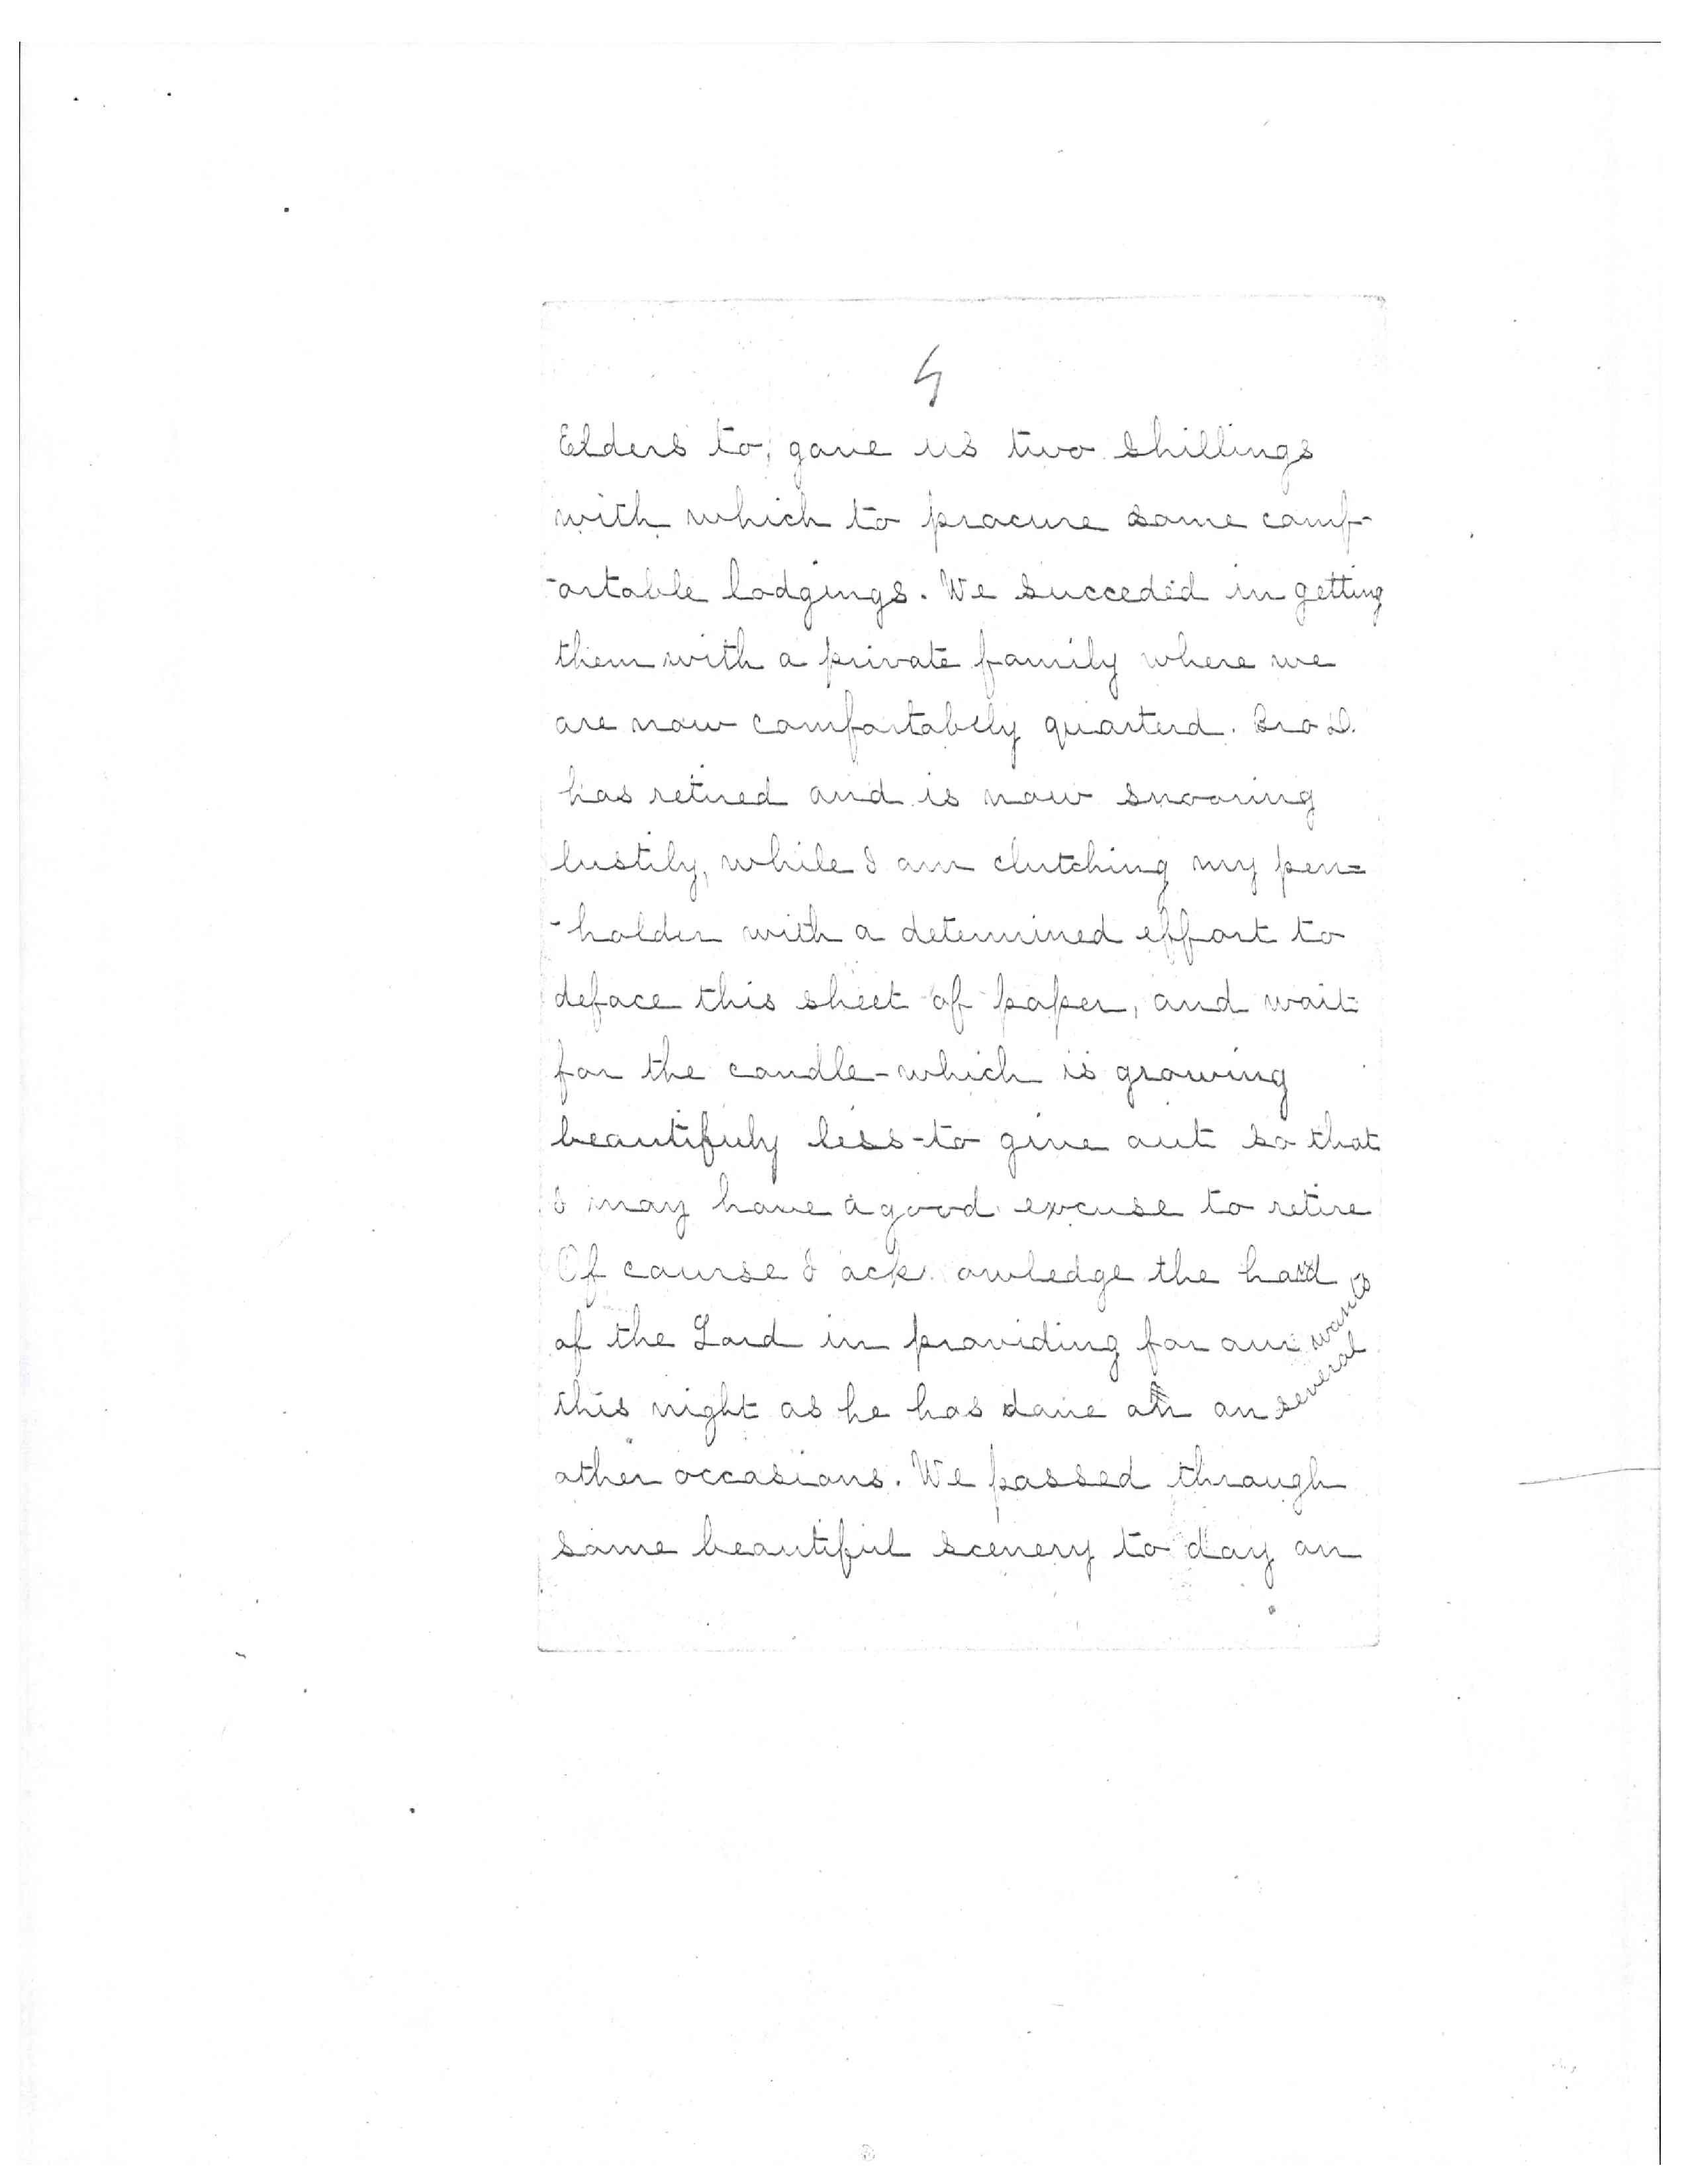 4
Elders to, gave us two shillings
with which to procure some comf-
-ortable lodgings. We succeded in getting
them with a private family where we
are now comfortablly quarterd. Bro D.
has retired and is now snooring
lustily, while I am clutching my pen=
-holder with a determined effort to
deface this sheet of paper, and wait
for the candle-which is growing
beautifuly less-to give out so that
I may have a good excuse to retire
Of course I ack owledge the hand
of the Lord in providing for our wants
this night as he has done on several
other occasions. We passed through
some beautiful scenery to day on